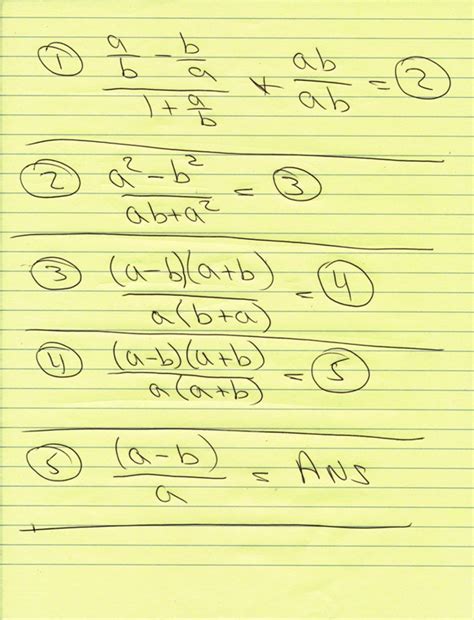 ① (a/b - b/a)/(1 + a/b) * ab/ab = ②
② (a² - b²)/(ab + a²) = ③
③ (a-b)(a+b)/a(b+a) = ④
④ (a-b)(a+b)/a(a+b) = ⑤
⑤ (a-b)/a = ANS